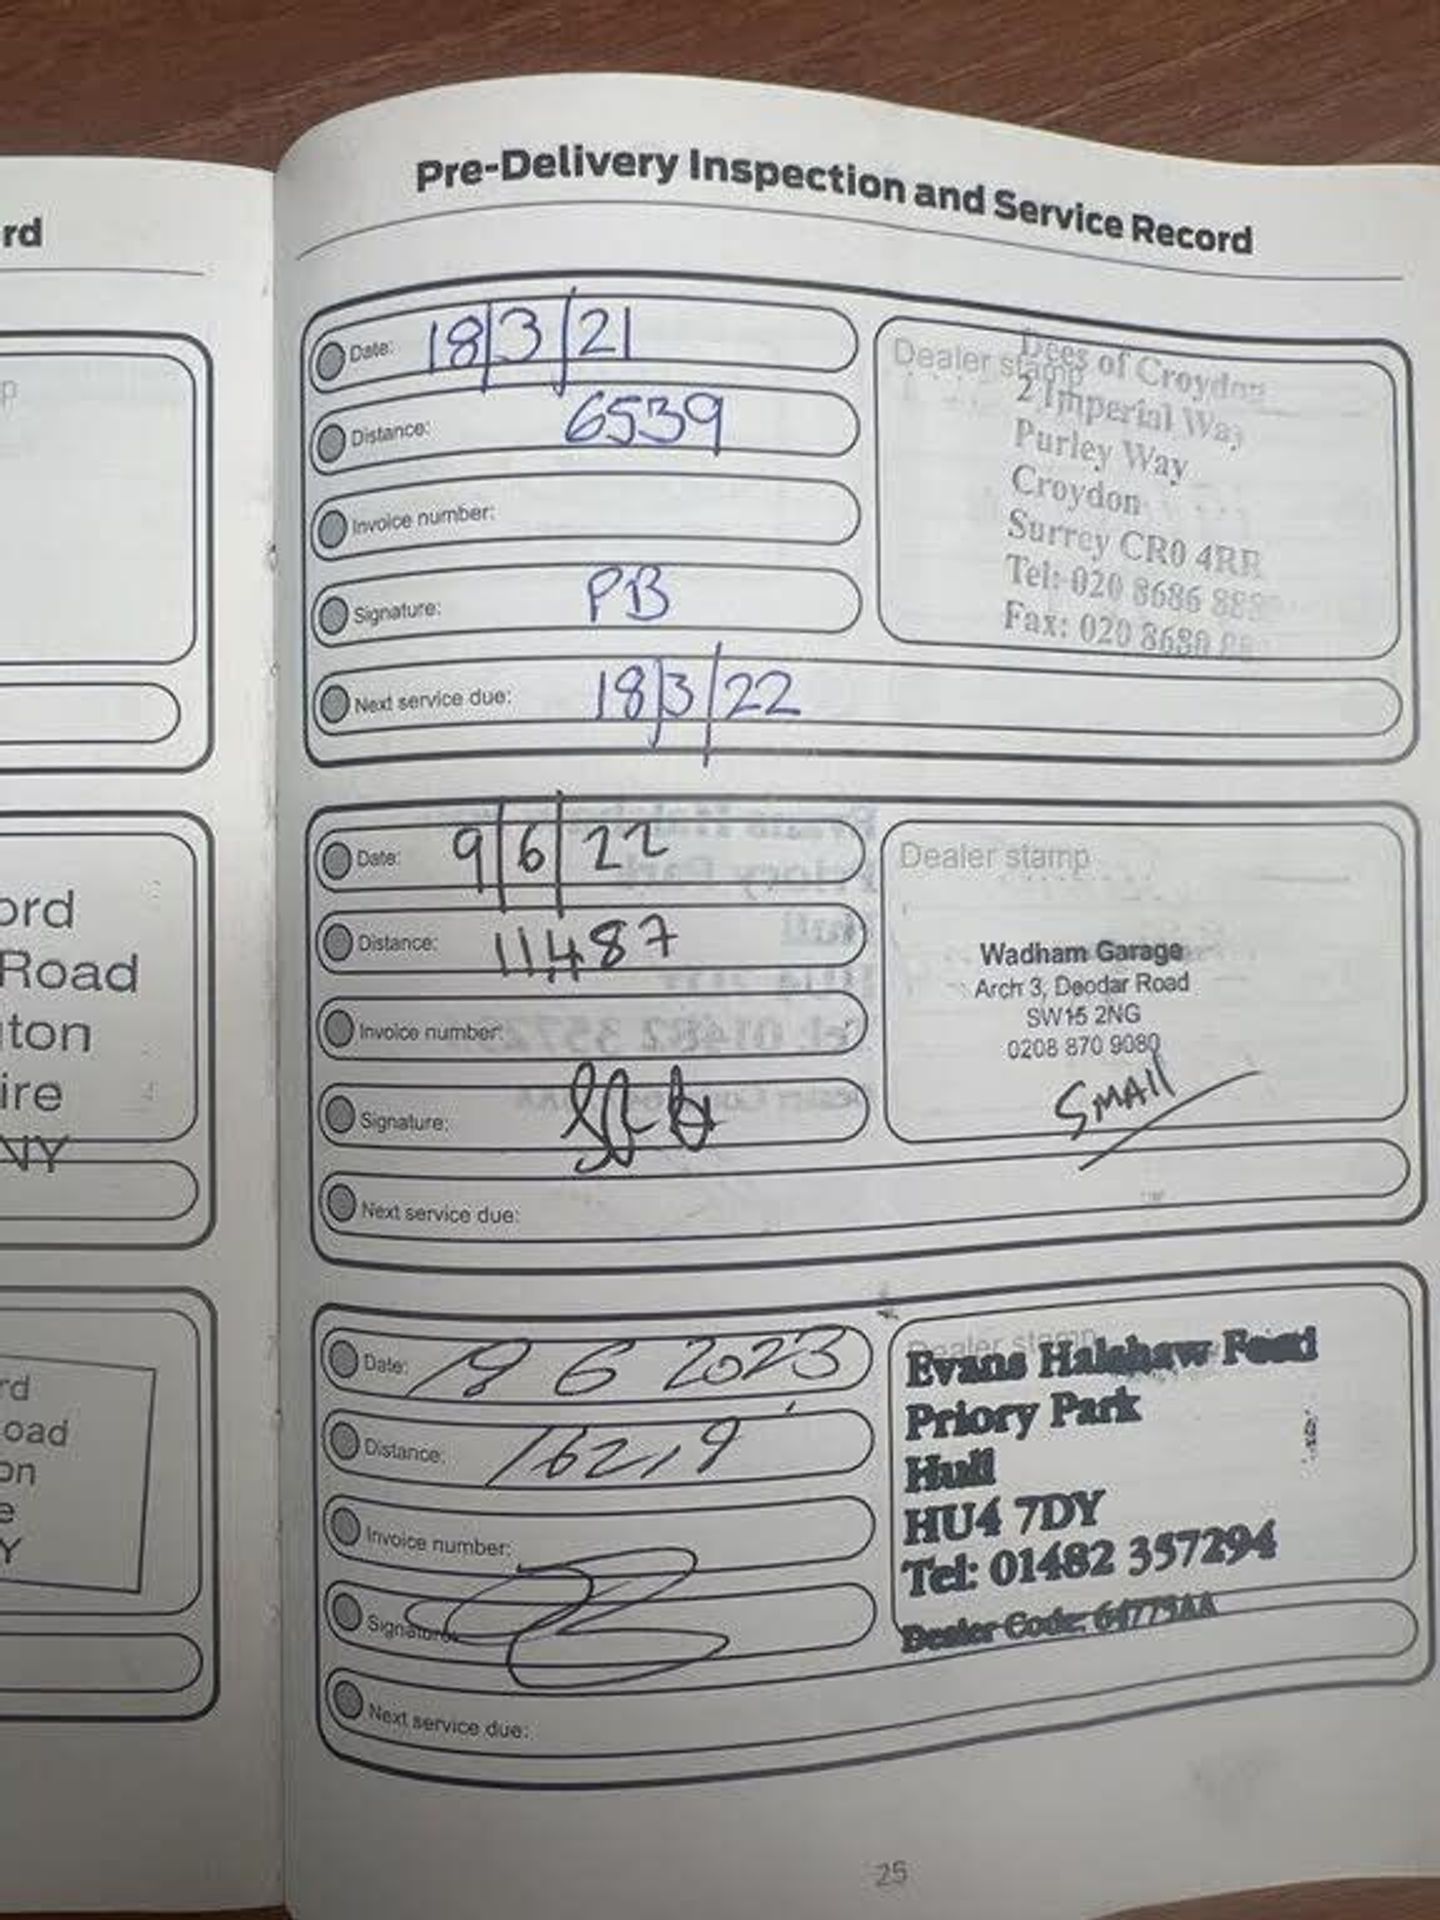 rd
p
ord
Road
ton
ire
NY
rd
oad
on
e
Y
Pre-Delivery Inspection and Service Record
Date: 18/3/21
Distance: 6539
Invoice number:
Signature: PB
Next service due: 18/3/22
Dealer stamp
Dees of Croydon
2 Imperial Way
Purley Way
Croydon
Surrey CR0 4RR
Tel: 020 8686
Fax: 020 8680
Date: 9/6/22
Distance: 11,487
Invoice number:
Signature:
Next service due:
Dealer stamp
Wadham Garage
Arch 3, Deodar Road
SW15 2NG
0208 870 9080
SMAll
Date: 19 6 2023
Distance: 16219
Invoice number:
Signature:
Next service due:
Dealer stamp
Evans Halshaw Ford
Priory Park
Hull
HU4 7DY
Tel: 01482 357294
Dealer Code: 64775AA
25